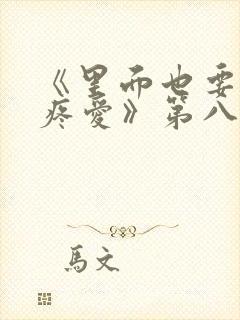 《里面也要
疼爱》第八
馬文